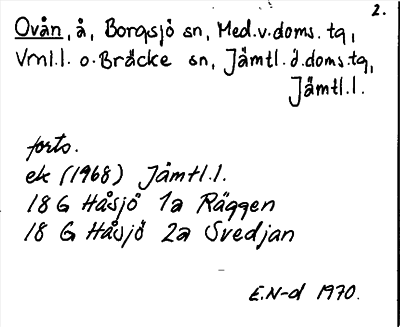 2.
Ovån, å, Borgsjö sn, Med.v.doms.tg,
Vnl.l. o. Bräcke sn, Jämtl.ö.doms.tg,
Jämtl.l.
forts.
ek (1968) Jämtl.l.
18 G Håsjö 1a Räggen
18 G Håsjö 2a Svedjan
E.N-d 1970.